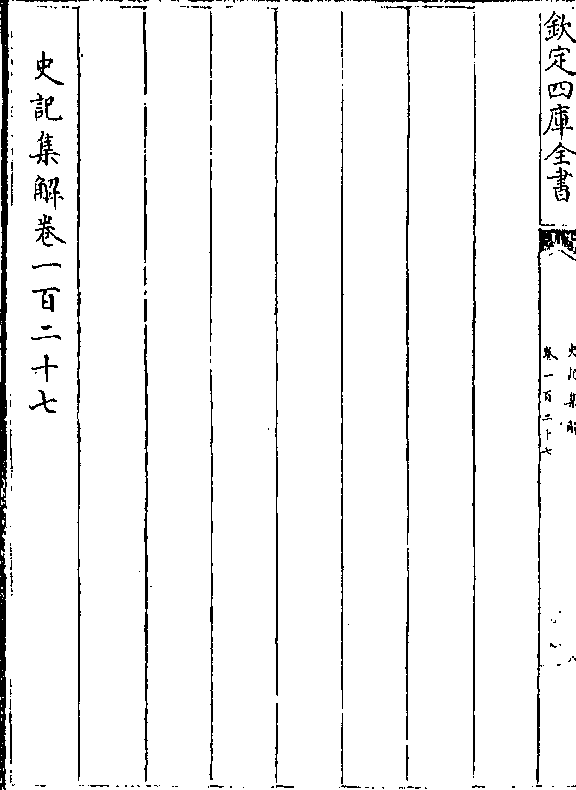 欽定四庫全書
史記集解
卷一百二十七
史記集解卷一百二十七